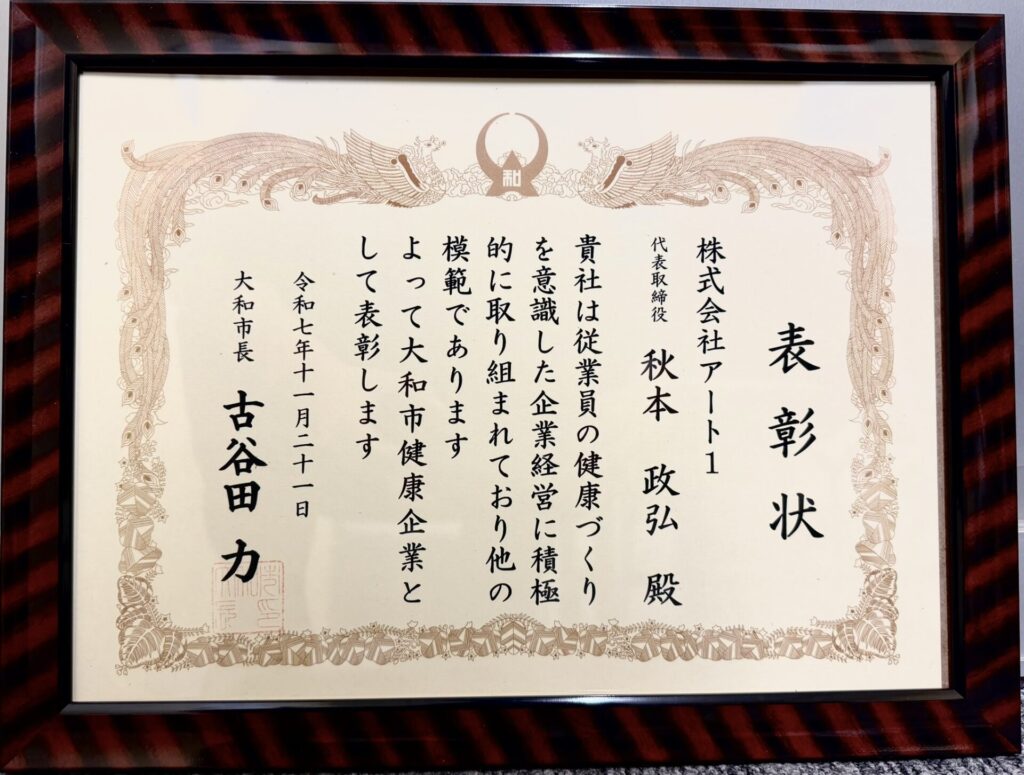 和
表彰状
株式会社アート1
代表取締役 秋本 政弘 殿
貴社は従業員の健康づくり
を意識した企業経営に積極
的に取り組まれており他の
模範であります
よって大和市健康企業と
して表彰します
令和七年十一月二十一日
大和市長 古谷田 力